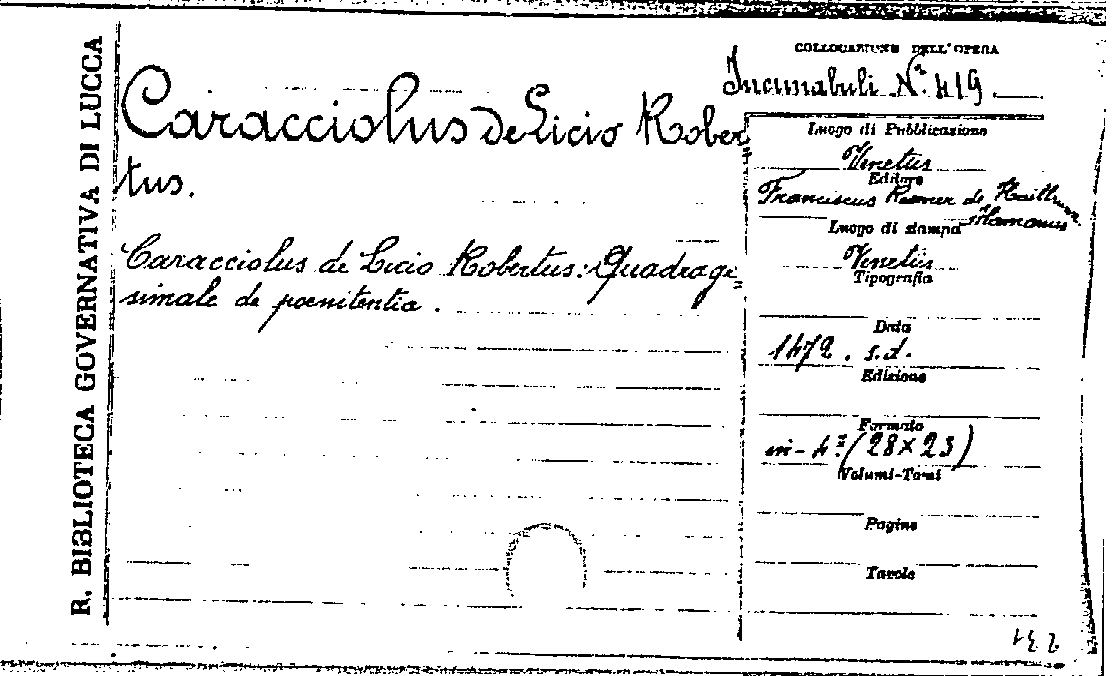 R. BIBLIOTECA GOVERNATIVA DI LUCCA
COLLOCAZIONE DELL'OPERA
Incunabuli N.º 419
Caracciolus de Licio Rober=
tus.
Caracciolus de Licio Robertus: Quadrage=
simale de poenitentia.
Luogo di Pubblicazione
Venetiis
Editore
Franciscus Renner de Hailbrun
Alamanus
Luogo di stampa
Venetiis
Tipografia
Data
1472. s.d.
Edizione
Formato
in-4º (28x23)
Volumi-Tomi
Pagine
Tavole